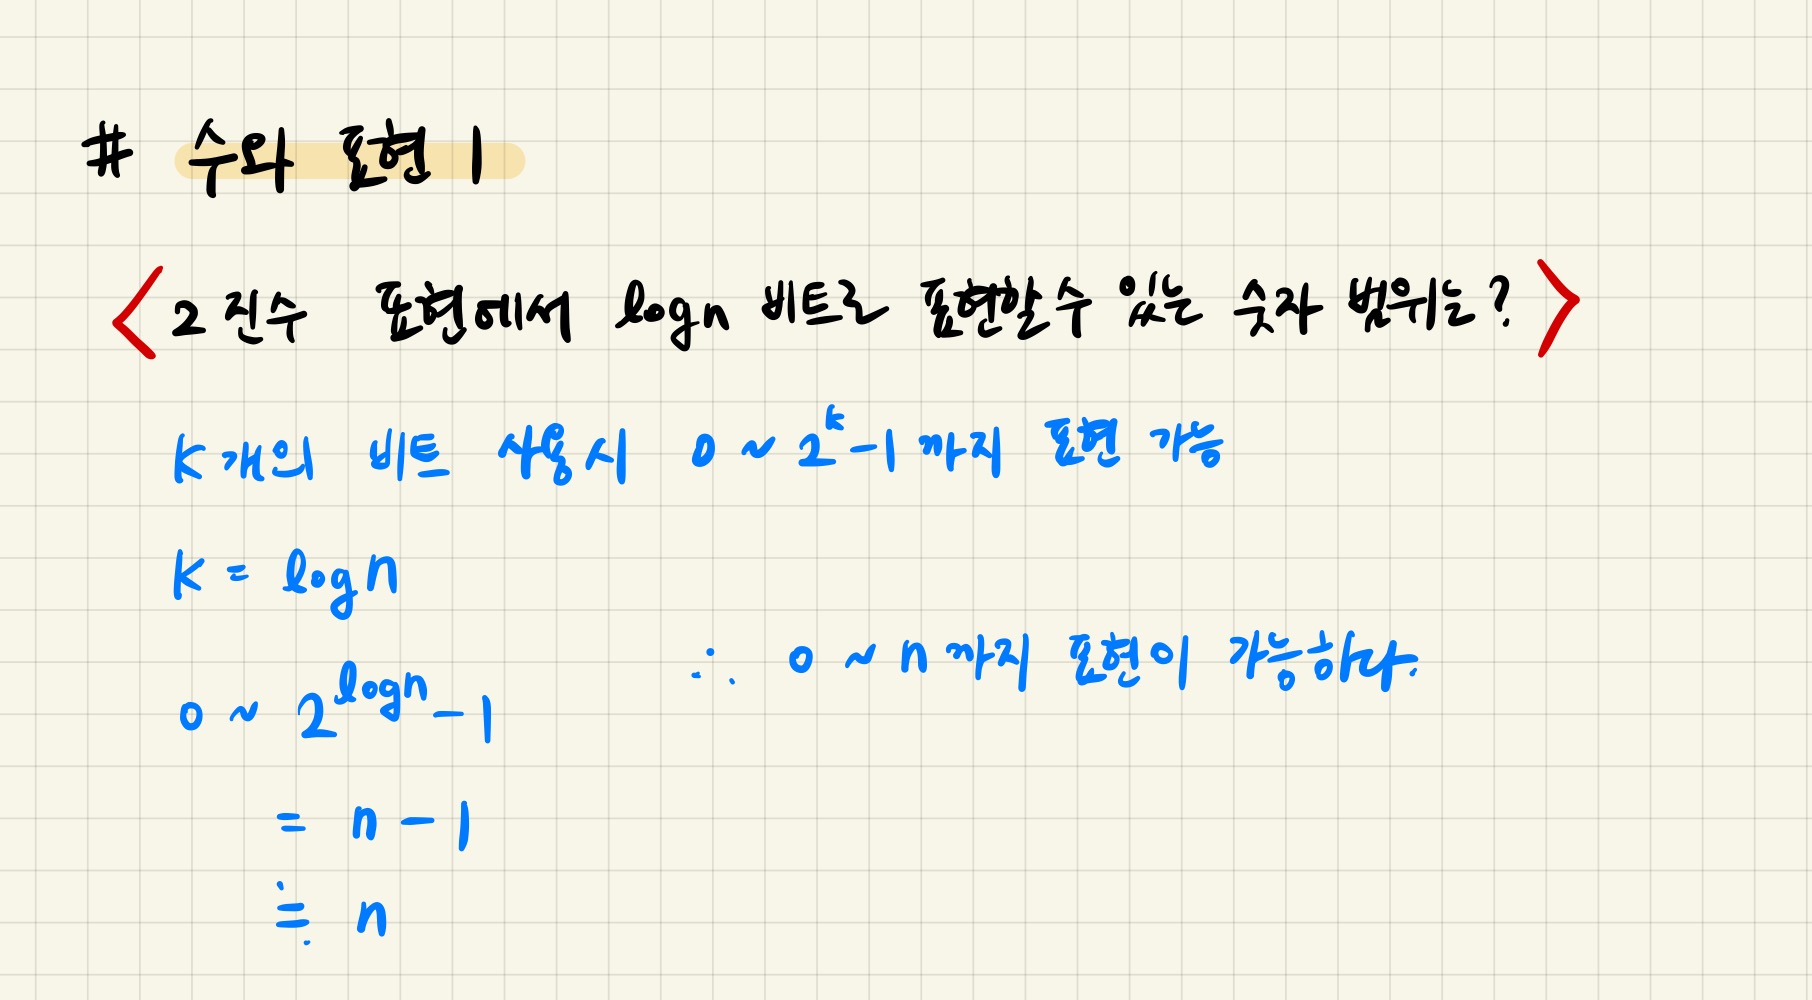 # 수와 표현 1
< 2진수 표현에서 logn 비트로 표현할 수 있는 숫자 범위는? >
k개의 비트 사용시 0 ~ 2^k-1 까지 표현 가능
k = logn
0 ~ 2^logn - 1
∴ 0 ~ n까지 표현이 가능하다.
= n - 1
≒ n